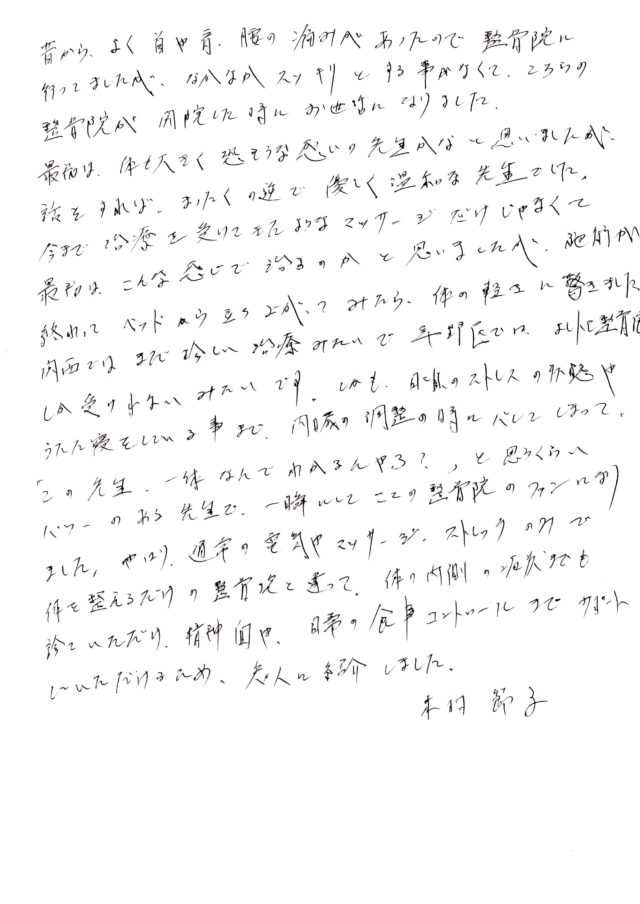 昔から、よく首や肩、腰の痛みがあったので整骨院に
行ってましたが、なかなかスッキリとする事がなくて、こちらの
整骨院が開院した時にお世話になりました。
最初は、体も大きく恐そうな感じの先生かなと思いましたが、
話をすれば、まったくの逆で優しく温和な先生でした。
今まで治療を受けてきたようなマッサージだけじゃなくて
最初は、こんな感じで治るのかと思いましたが、施術が
終わってベッドから立ち上がってみたら、体の軽さに驚きました
関西ではまだ珍しい治療みたいで平野区では、よしだ整骨院
しか受けれないみたいです。しかも、日常のストレスの状態や
うたた寝をしている事まで、内臓の調整の時にバレてしまって、
「この先生、一体なんでわかるんやろ?」と思うくらい
パワーのある先生で、一瞬にしてここの整骨院のファンになり
ました。やはり、通常の電気やマッサージ、ストレッチのみで
体を整えるだけの整骨院と違って、体の内側の症状までも
診ていただけ、精神面や、日常の食事コントロールまでサポート
していただけるため、知人に紹介しました。
木村 節子